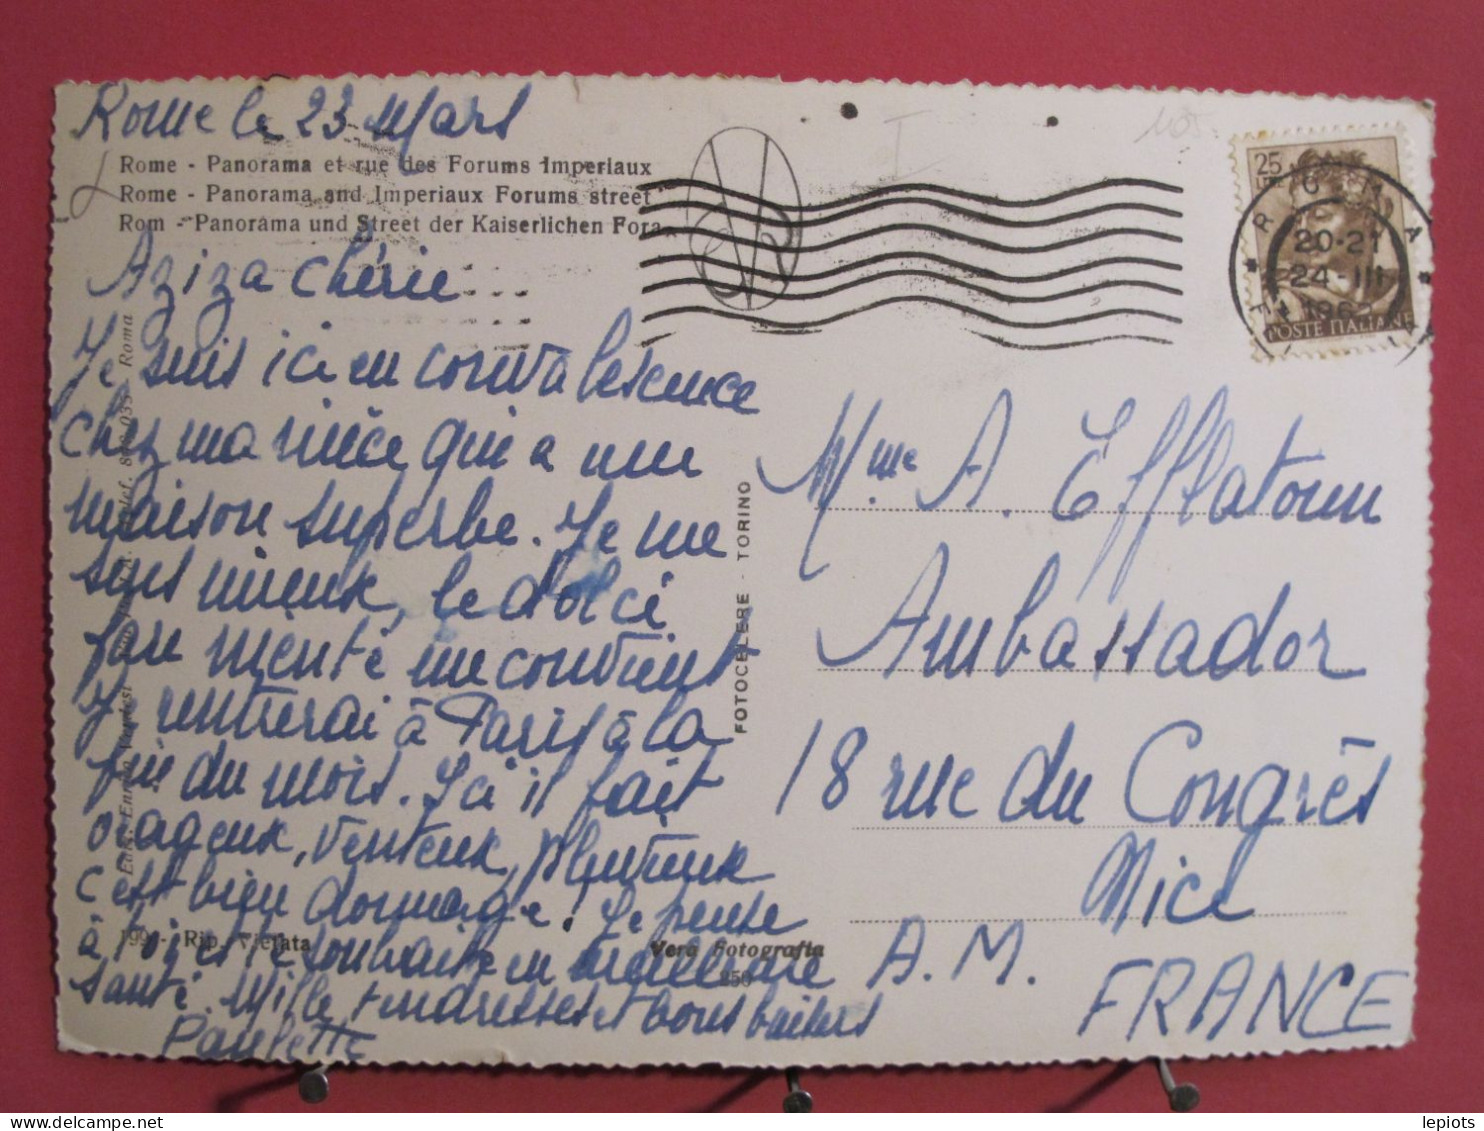 Rome le 23 Mars
Rome - Panorama et rue des Forums Imperiaux
Rome - Panorama and Imperiaux Forums street
Rom - Panorama und Street der Kaiserlichen Fora
Aziza chérie
Je suis ici en convalescence
chez ma nièce qui a une
maison superbe. Je me
sens mieux, le dolci
far niente me convient
Je rentrerai à Paris à la
fin du mois. Ici il fait
orageux, venteux, pluvieux
c'est bien dommage! Je pense
à toi et te souhaite en meilleure
santé. Mille tendresses et bons baisers
Paulette
199 - Rip. vietata
Vera Fotografia
250
FOTOCELERE - TORINO
Roma
105
I
25
LIRE
POSTE ITALIANE
ROMA
20-21
24-III
196
Mme A. Efflatoun
Ambassador
18 rue du Congrès
Nice
A. M.
FRANCE
lepiots